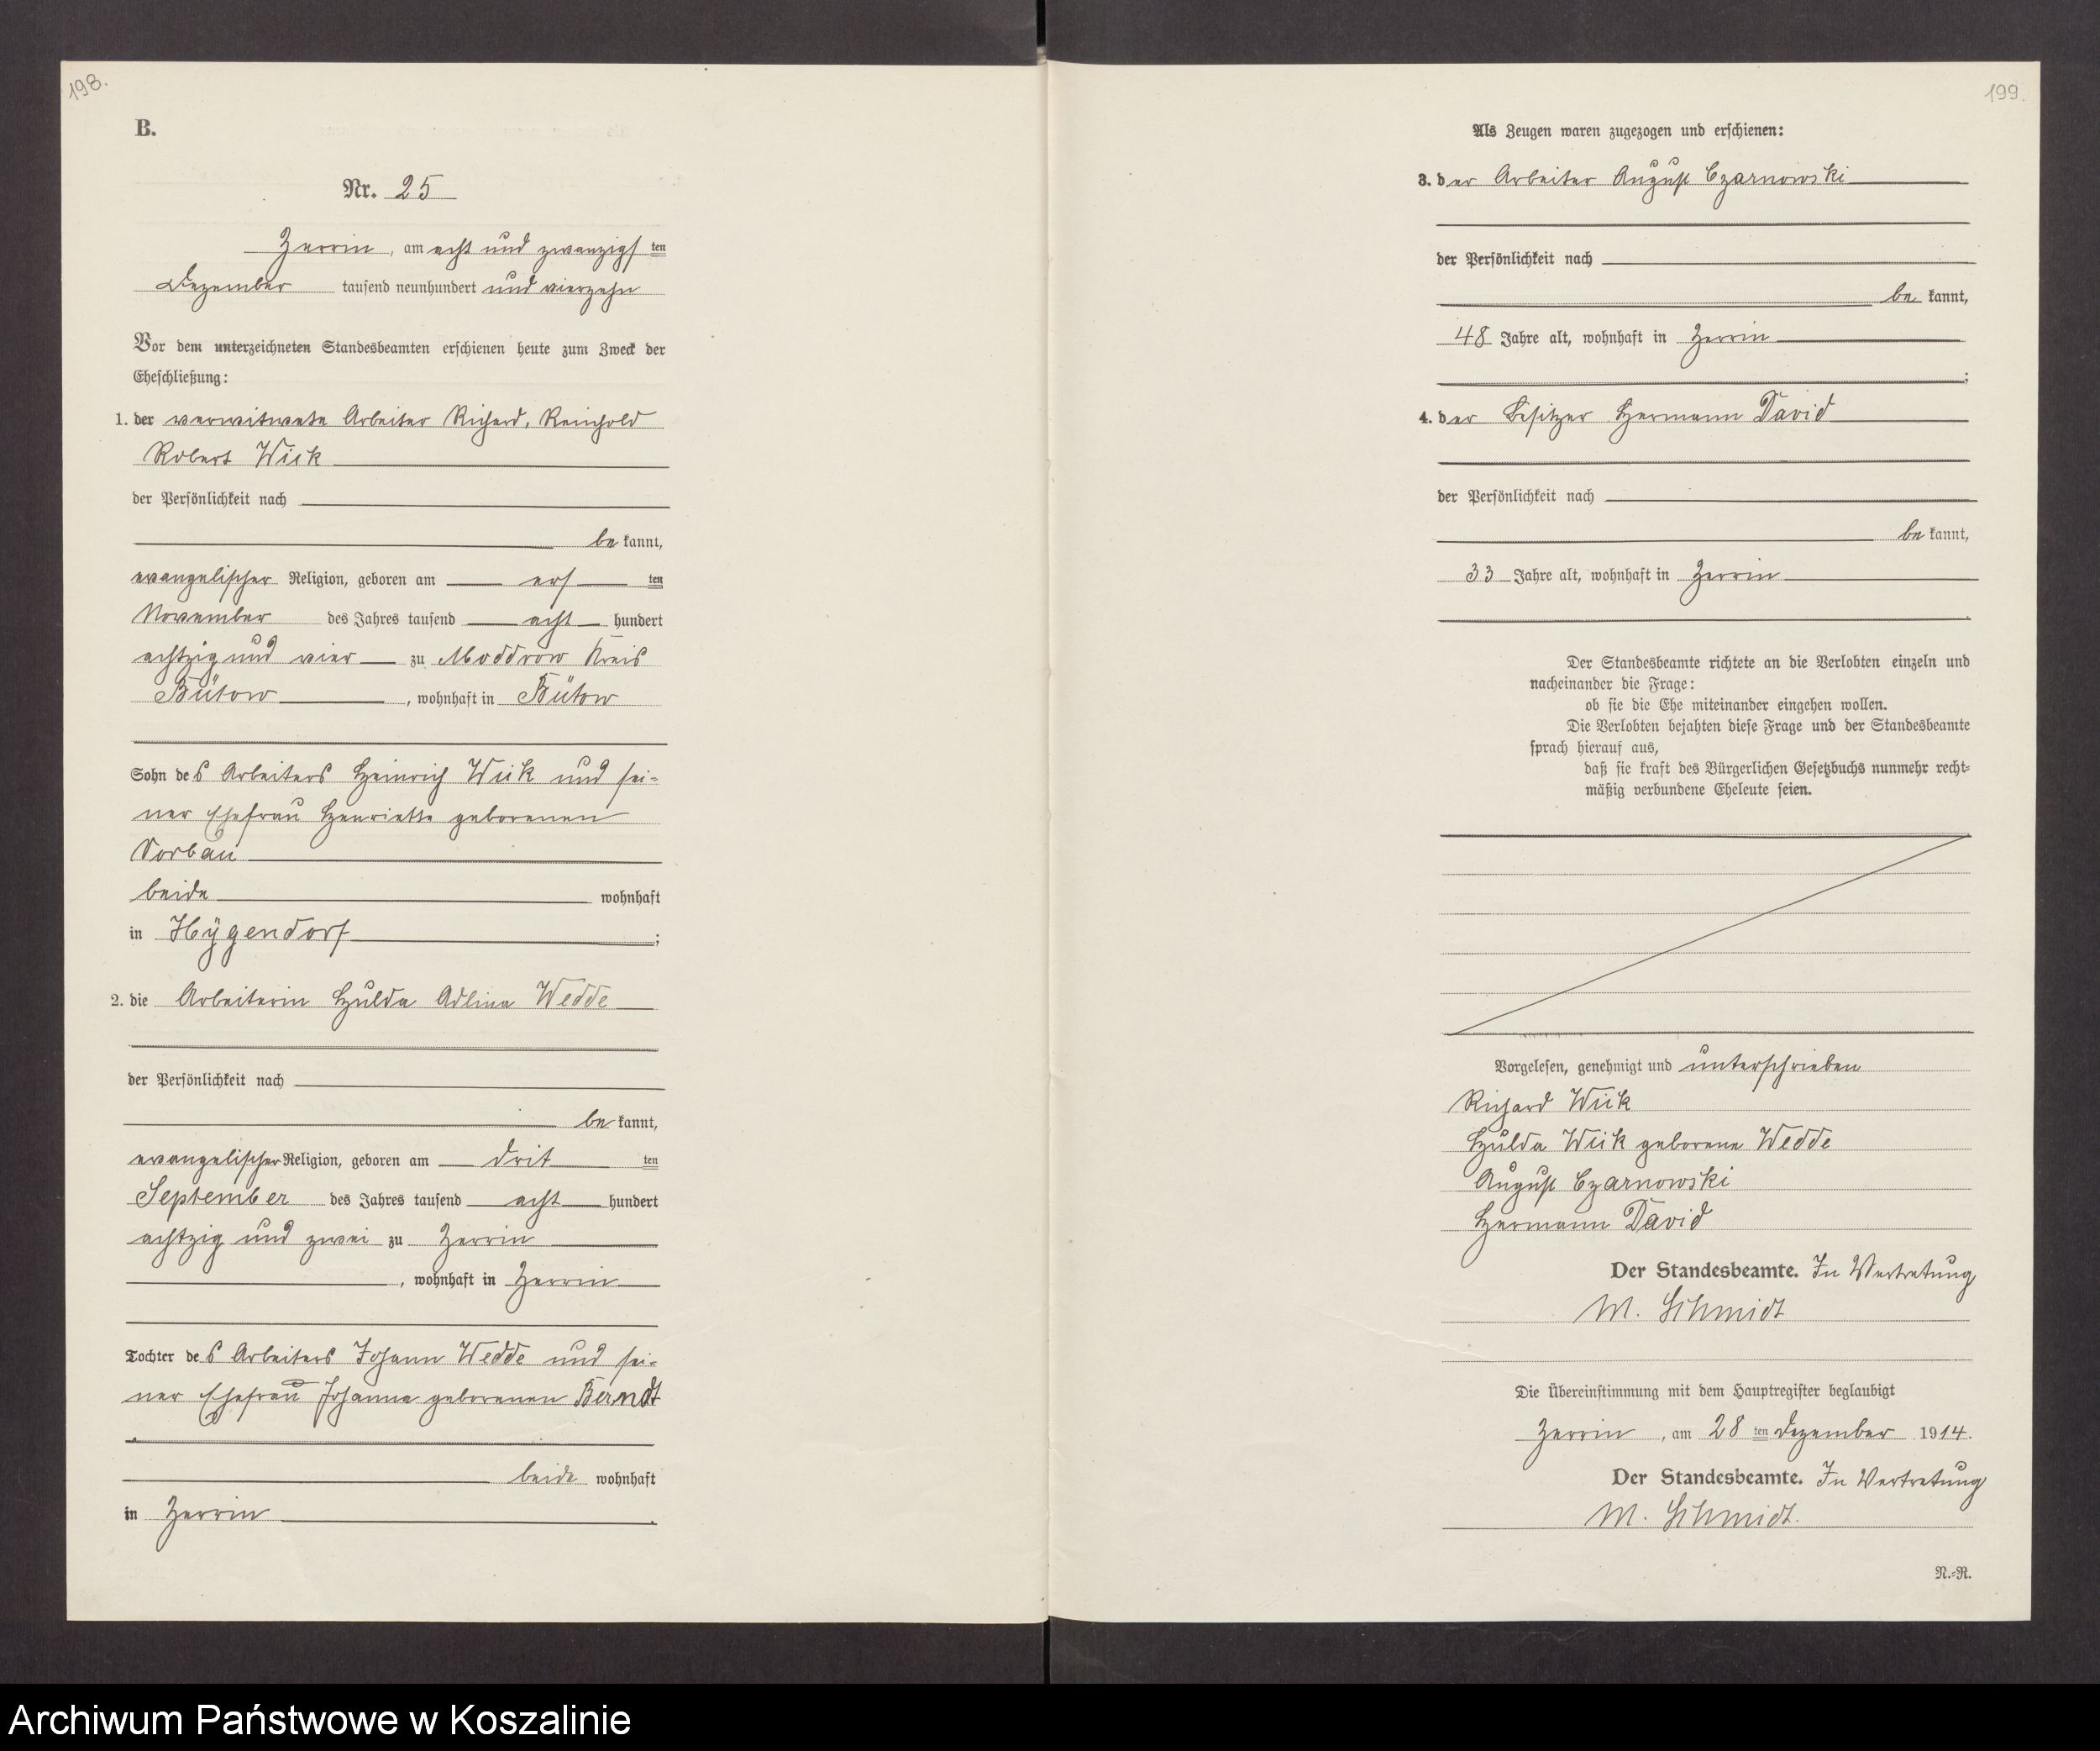 198.
B.
Nr. 25
Zerrin, am acht und zwanzigsten
Dezember tausend neunhundert und vierzehn
Vor dem unterzeichneten Standesbeamten erschienen heute zum Zweck der
Eheschließung:
1. der verwitwete Arbeiter Richard, Reinhold
Robert Wiik
der Persönlichkeit nach
be kannt,
evangelischer Religion, geboren am ersten
November des Jahres tausend acht hundert
achtzig und vier zu Moddrow Kreis
Bütow, wohnhaft in Bütow
Sohn des Arbeiters Heinrich Wiik und sei-
ner Ehefrau Henriette geborenen
Vorbau
beide wohnhaft
in Hÿgendorf;
2. die Arbeiterin Hulda Adline Wedde
der Persönlichkeit nach
be kannt,
evangelischer Religion, geboren am dritten
September des Jahres tausend acht hundert
achtzig und zwei zu Zerrin
, wohnhaft in Zerrin
Tochter des Arbeiters Johann Wedde und sei-
ner Ehefrau Johanna geborenen Berndt
beide wohnhaft
in Zerrin.
199.
Als Zeugen waren zugezogen und erschienen:
3. der Arbeiter August Czarnowski
der Persönlichkeit nach
be kannt,
48 Jahre alt, wohnhaft in Zerrin
;
4. der Besitzer Hermann David
der Persönlichkeit nach
be kannt,
33 Jahre alt, wohnhaft in Zerrin
.
Der Standesbeamte richtete an die Verlobten einzeln und
nacheinander die Frage:
ob sie die Ehe miteinander eingehen wollen.
Die Verlobten bejahten diese Frage und der Standesbeamte
sprach hierauf aus,
daß sie kraft des Bürgerlichen Gesetzbuchs nunmehr recht-
mäßig verbundene Eheleute seien.
Vorgelesen, genehmigt und unterschrieben
Richard Wiik
Hulda Wiik geborene Wedde
August Czarnowski
Hermann David
Der Standesbeamte. In Vertretung
M. Schmidt
Die Übereinstimmung mit dem Hauptregister beglaubigt
Zerrin, am 28 ten Dezember 1914.
Der Standesbeamte. In Vertretung
M. Schmidt.
N.-R.
Archiwum Państwowe w Koszalinie